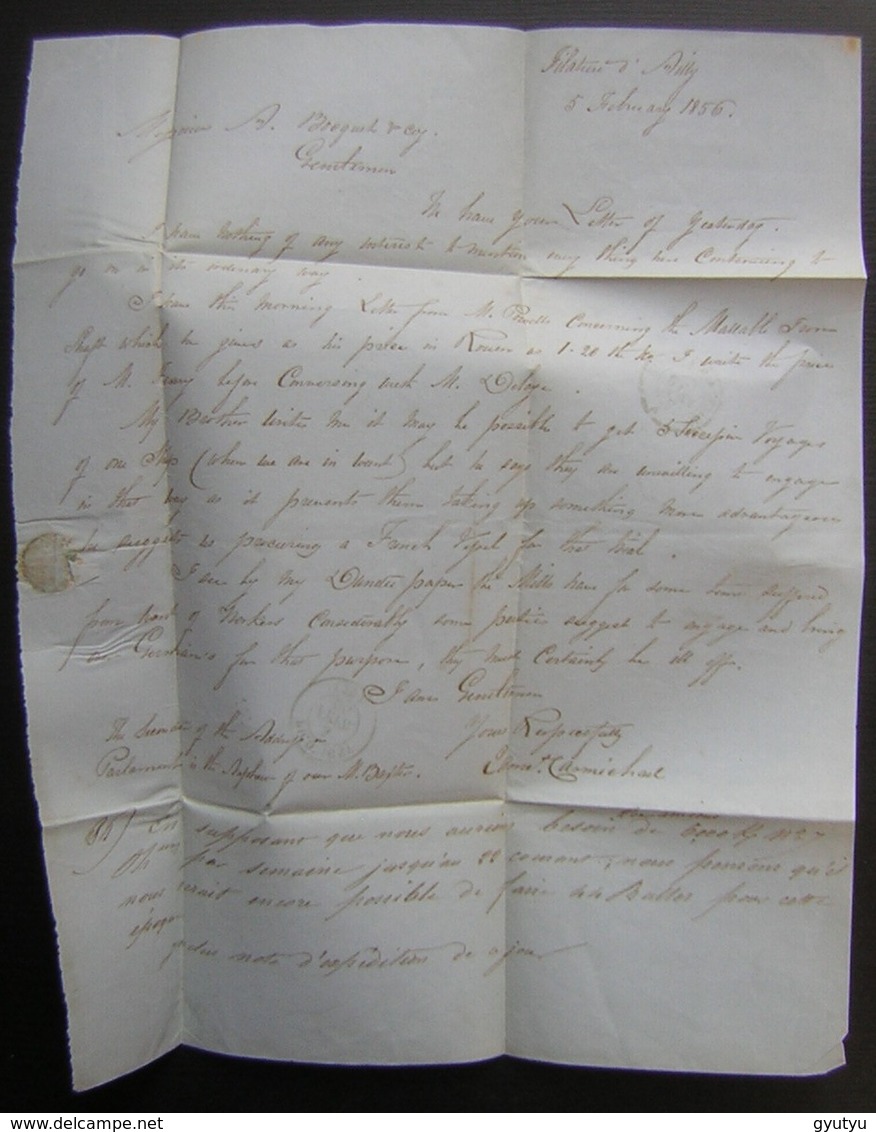 Filature d' Ailly
5 February 1856.
Messieurs A. Bocquet & Coy.
Gentlemen
We have your Letter of Yesterday.
I have nothing of any interest to mention every thing here Continuing to
go on in its ordinary way
I have this morning Letter from M. Powells Concerning the Maleable Iron
Shaft which he gives as his price in Rouen as 1-20 the Ko I write the price
of M. before Conversing with M. Deloye.
My Brother writes me it may be possible to get 5 Voyages
of one Ship (when we are in want) but he says they are unwilling to engage
in that way as it prevents them taking up something more advantageous
he suggests us procuring a French Vessel for that trial.
I see by my Dundee paper the Mills have for some time suffered
from want of Workers Considerably some parties suggest to engage and bring
over Germans for that purpose, they must Certainly be ill off.
I am Gentlemen
Yours Respectfully
The Seconder of the Address in
Parliament is the Nephew of our M. Baxter.
Carmichael
En supposant que nous aurions besoin de 6000 Kg No 2
par semaine jusqu'au 22 courant, nous pensons qu'il
nous serait encore possible de faire des Balles pour cette
époque
note d'expédition de ce jour
gyutyu